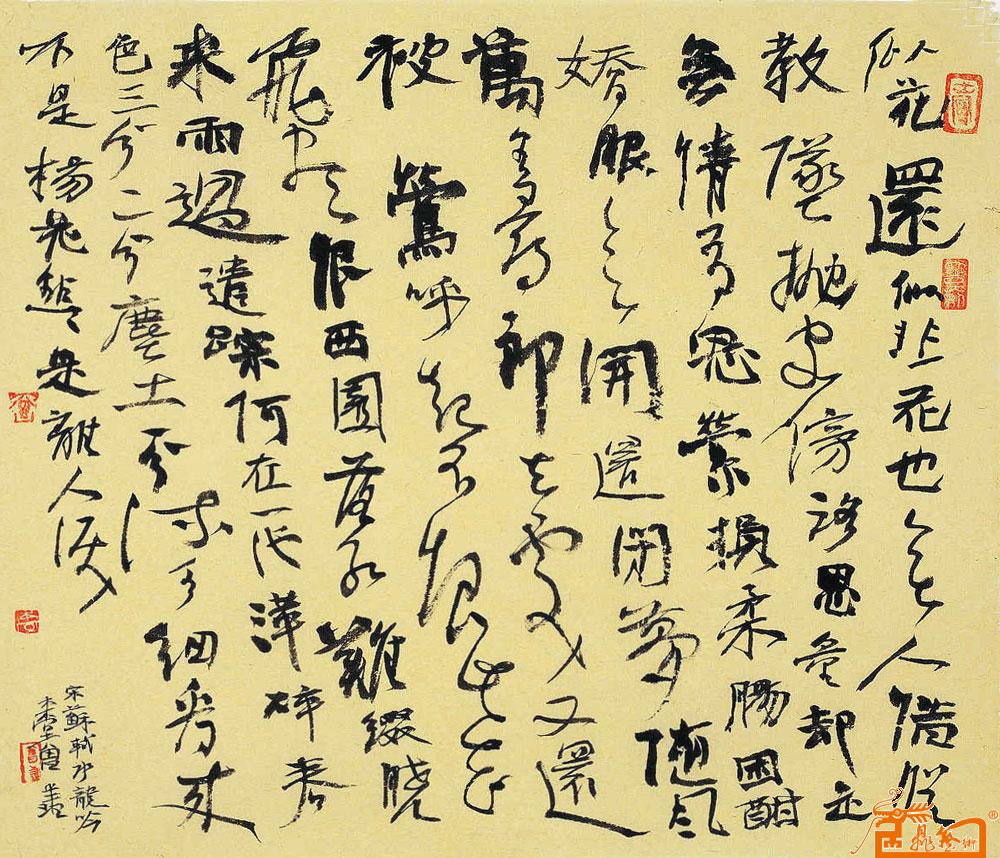 似花還似非花也无人惜從
教墜拋家傍路思量却是
無情有思縈損柔腸困酣
嬌眼欲開還閉夢隨風
萬里尋郎去處又還
被鶯呼起不恨此花
飛盡恨西園落紅難綴曉
来雨過遺蹤何在一池萍碎春
色三分二分塵土一分流水細看来
不是楊花點點是離人淚
宋蘇軾水龍吟